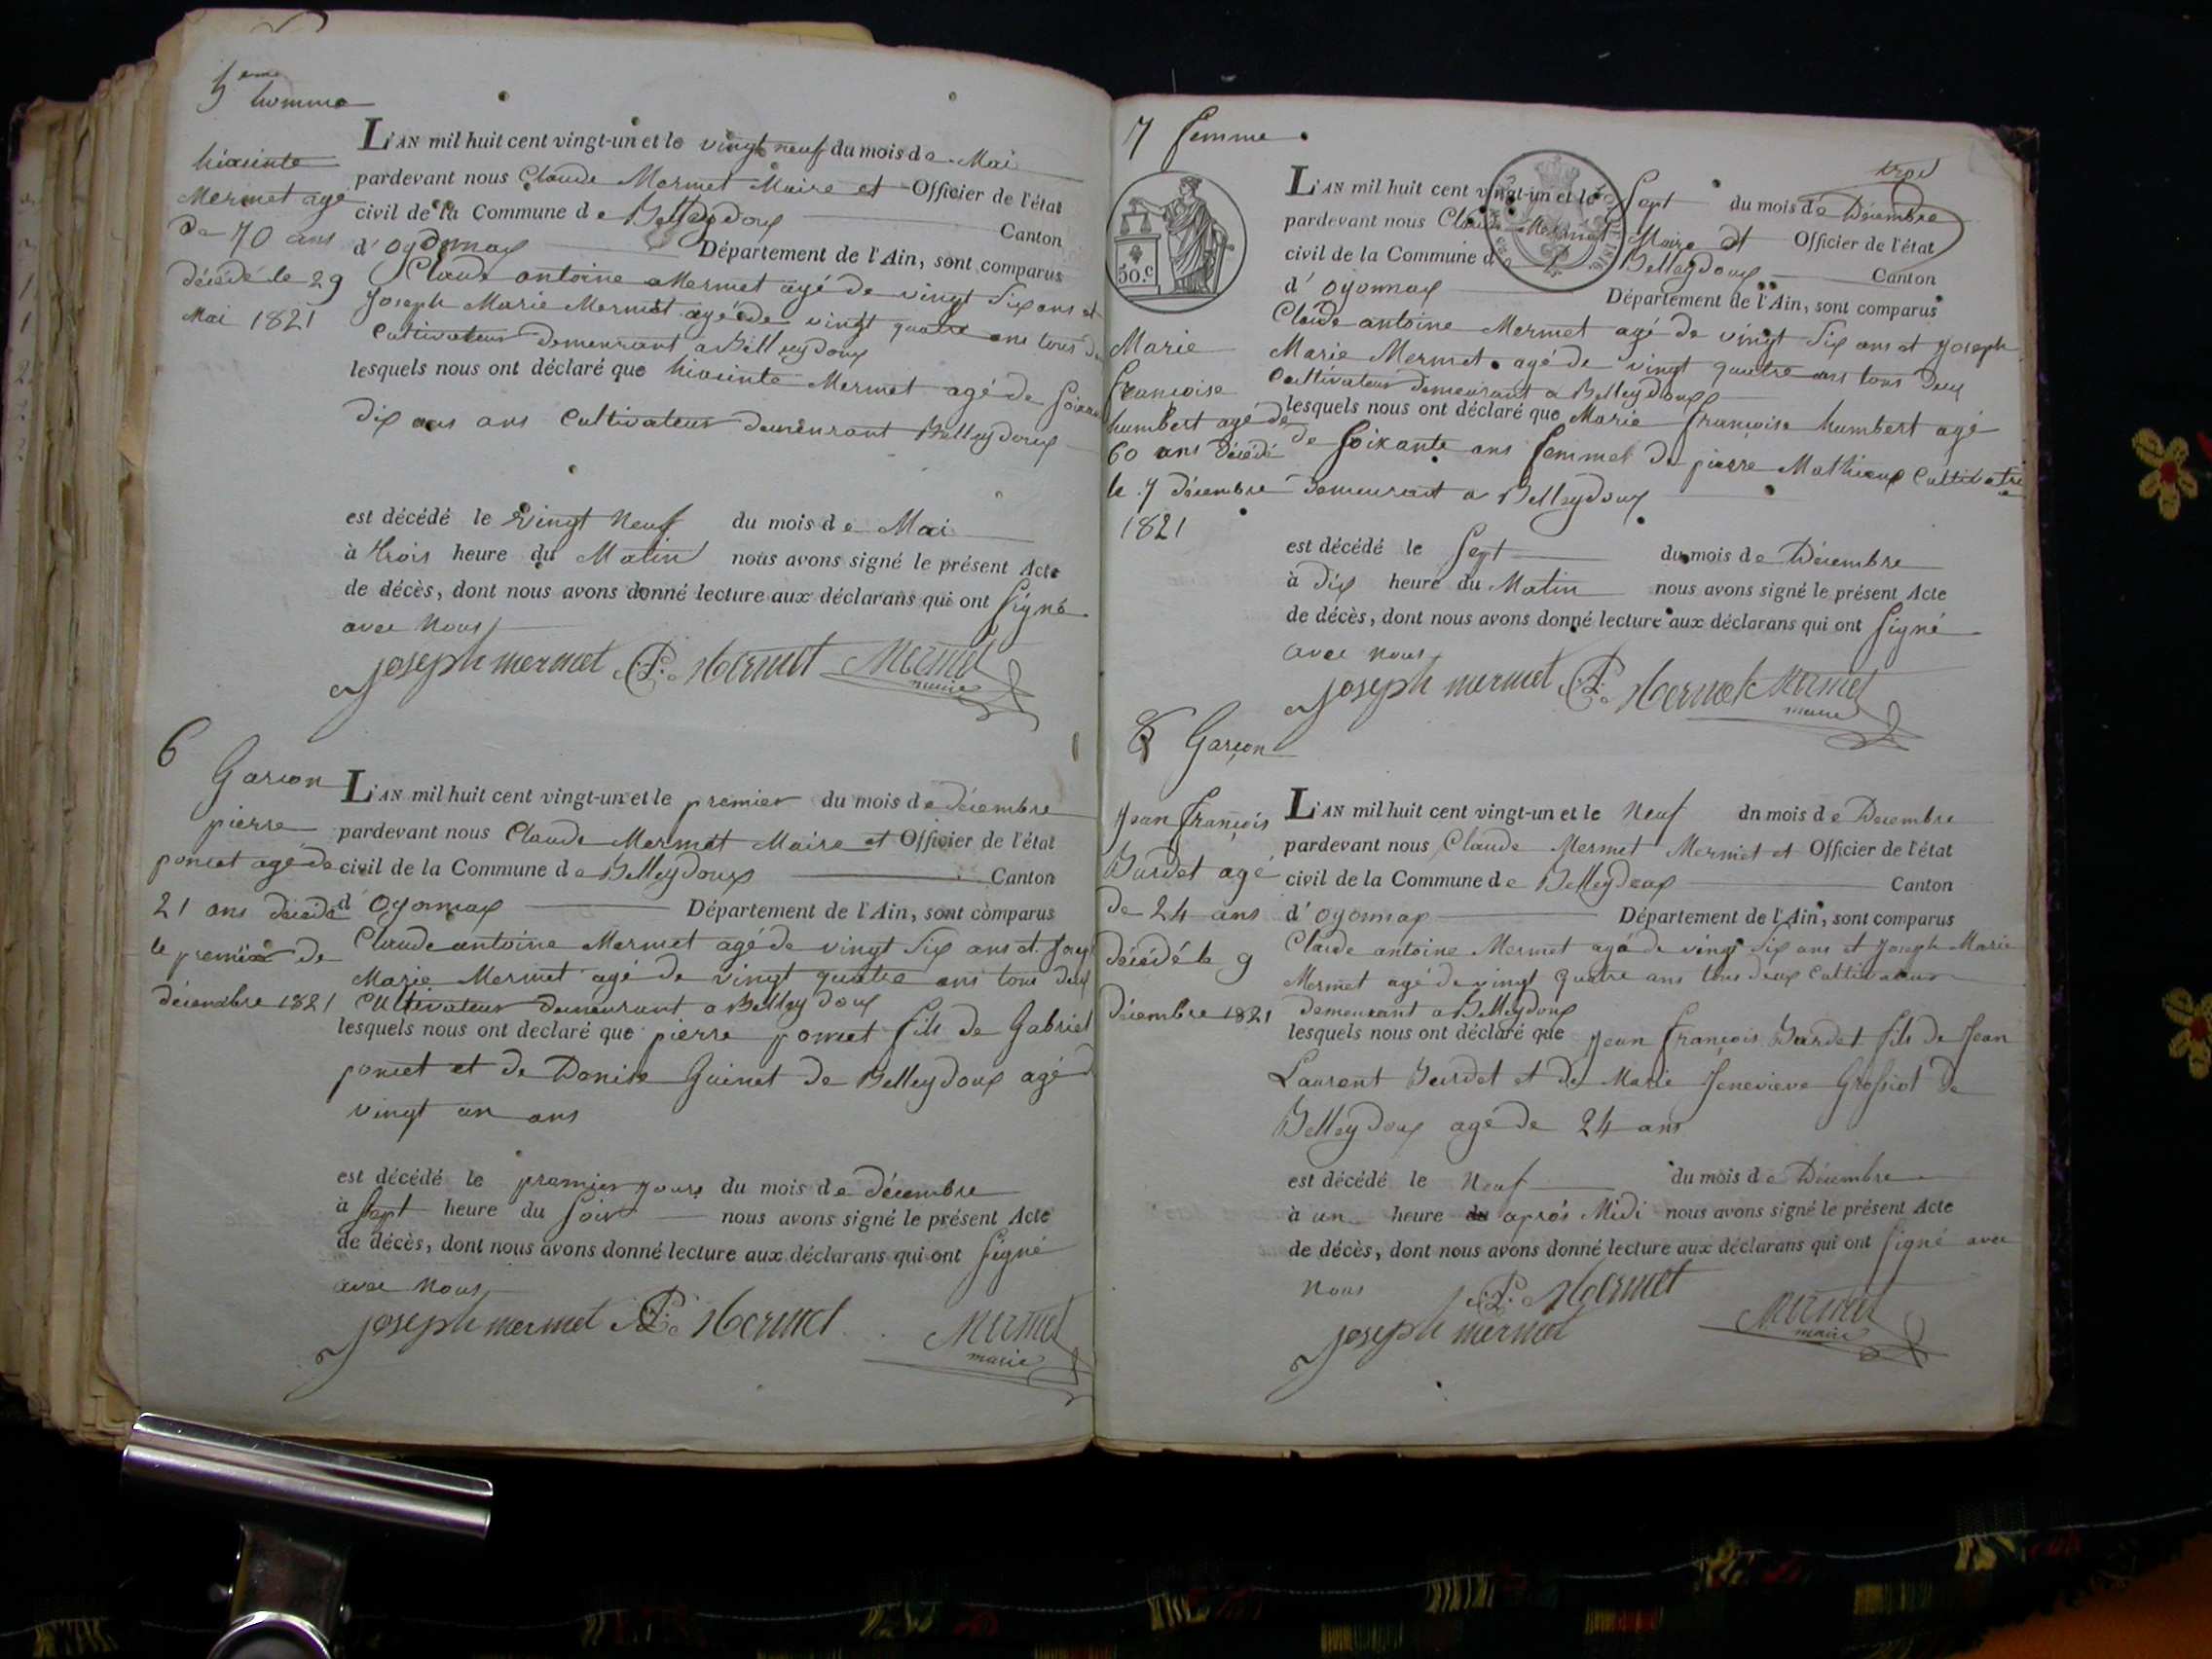 5eme homme
hiasinte
Mermet agé
de 70 ans
décédé le 29
Mai 1821
L'AN mil huit cent vingt-un et le vingt neuf du mois de Mai
pardevant nous Claude Mermet Maire et Officier de l'état
civil de la Commune de Belleydoux Canton
d'Oyonnax Département de l'Ain, sont comparus
Claude antoine Mermet agé de vingt Six ans et
Joseph Marie Mermet agé de vingt quatre ans tous
Cultivateur demeurant a Belleydoux
lesquels nous ont déclaré que hiasinte Mermet agé de
dix ans ans Cultivateur demeurant Belleydoux
est décédé le vingt neuf du mois de Mai
à trois heure du Matin nous avons signé le présent Acte
de décès, dont nous avons donné lecture aux déclarans qui ont Signé
avec Nous
joseph mermet Mermet Mermet
maire
6
Garson
pierre
poncet agé de
21 ans décédé
le premier de
décembre 1821
L'AN mil huit cent vingt-un et le premier du mois de décembre
pardevant nous Claude Mermet Maire et Officier de l'état
civil de la Commune de Belleydoux Canton
d'Oyonnax Département de l'Ain, sont comparus
Claude antoine Mermet agé de vingt Six ans et
Marie Mermet agé de vingt quatre ans tous deux
Cultivateur demeurant a Belleydoux
lesquels nous ont declaré que pierre poncet fils de Gabriel
poncet et de Denise Guinet de Belleydoux agé
vingt un ans
est décédé le premier jours du mois de décembre
à Sept heure du Soir nous avons signé le présent Acte
de décès, dont nous avons donné lecture aux déclarans qui ont Signé
avec Nous
joseph mermet Mermet Mermet
maire
7 femme
trois
50.c
Marie
françoise
humbert agé de
60 ans décédé
le 7 décembre
1821
L'AN mil huit cent vingt-un et le Sept du mois de Décembre
pardevant nous Claude Mermet Maire et Officier de l'état
civil de la Commune de Belleydoux Canton
d'Oyonnax Département de l'Ain, sont comparus
Claude antoine Mermet agé de vingt Six ans et Joseph
Marie Mermet agé de vingt quatre ans tous deux
Cultivateur demeurant a Belleydoux
lesquels nous ont déclaré que Marie françoise humbert agé
de Soixante ans femme de pierre Mathieux Cultivatrice
demeurant a Belleydoux
est décédé le Sept du mois de Décembre
à dix heure du Matin nous avons signé le présent Acte
de décès, dont nous avons donné lecture aux déclarans qui ont Signé
avec nous
joseph mermet Mermet Mermet
maire
8 Garçon
Jean françois
Burdet agé
de 24 ans
décédé le 9
décembre 1821
L'AN mil huit cent vingt-un et le Neuf dn mois de Decembre
pardevant nous Claude Mermet Mermet et Officier de l'état
civil de la Commune de Belleydoux Canton
d'oyonnax Département de l'Ain, sont comparus
Claude antoine Mermet agé de vingt Six ans et Joseph Marie
Mermet agé de vingt quatre ans tous deux Cultivateur
demeurant a Belleydoux
lesquels nous ont déclaré que Jean françois Burdet fils de Jean
Laurent Burdet et de Marie Jenevieve Grossiot de
Belleydoux agé de 24 ans
est décédé le Neuf du mois de Décembre
à un heure du après Midi nous avons signé le présent Acte
de décès, dont nous avons donné lecture aux déclarans qui ont Signé avec
nous
Mermet
joseph mermet Mermet
maire